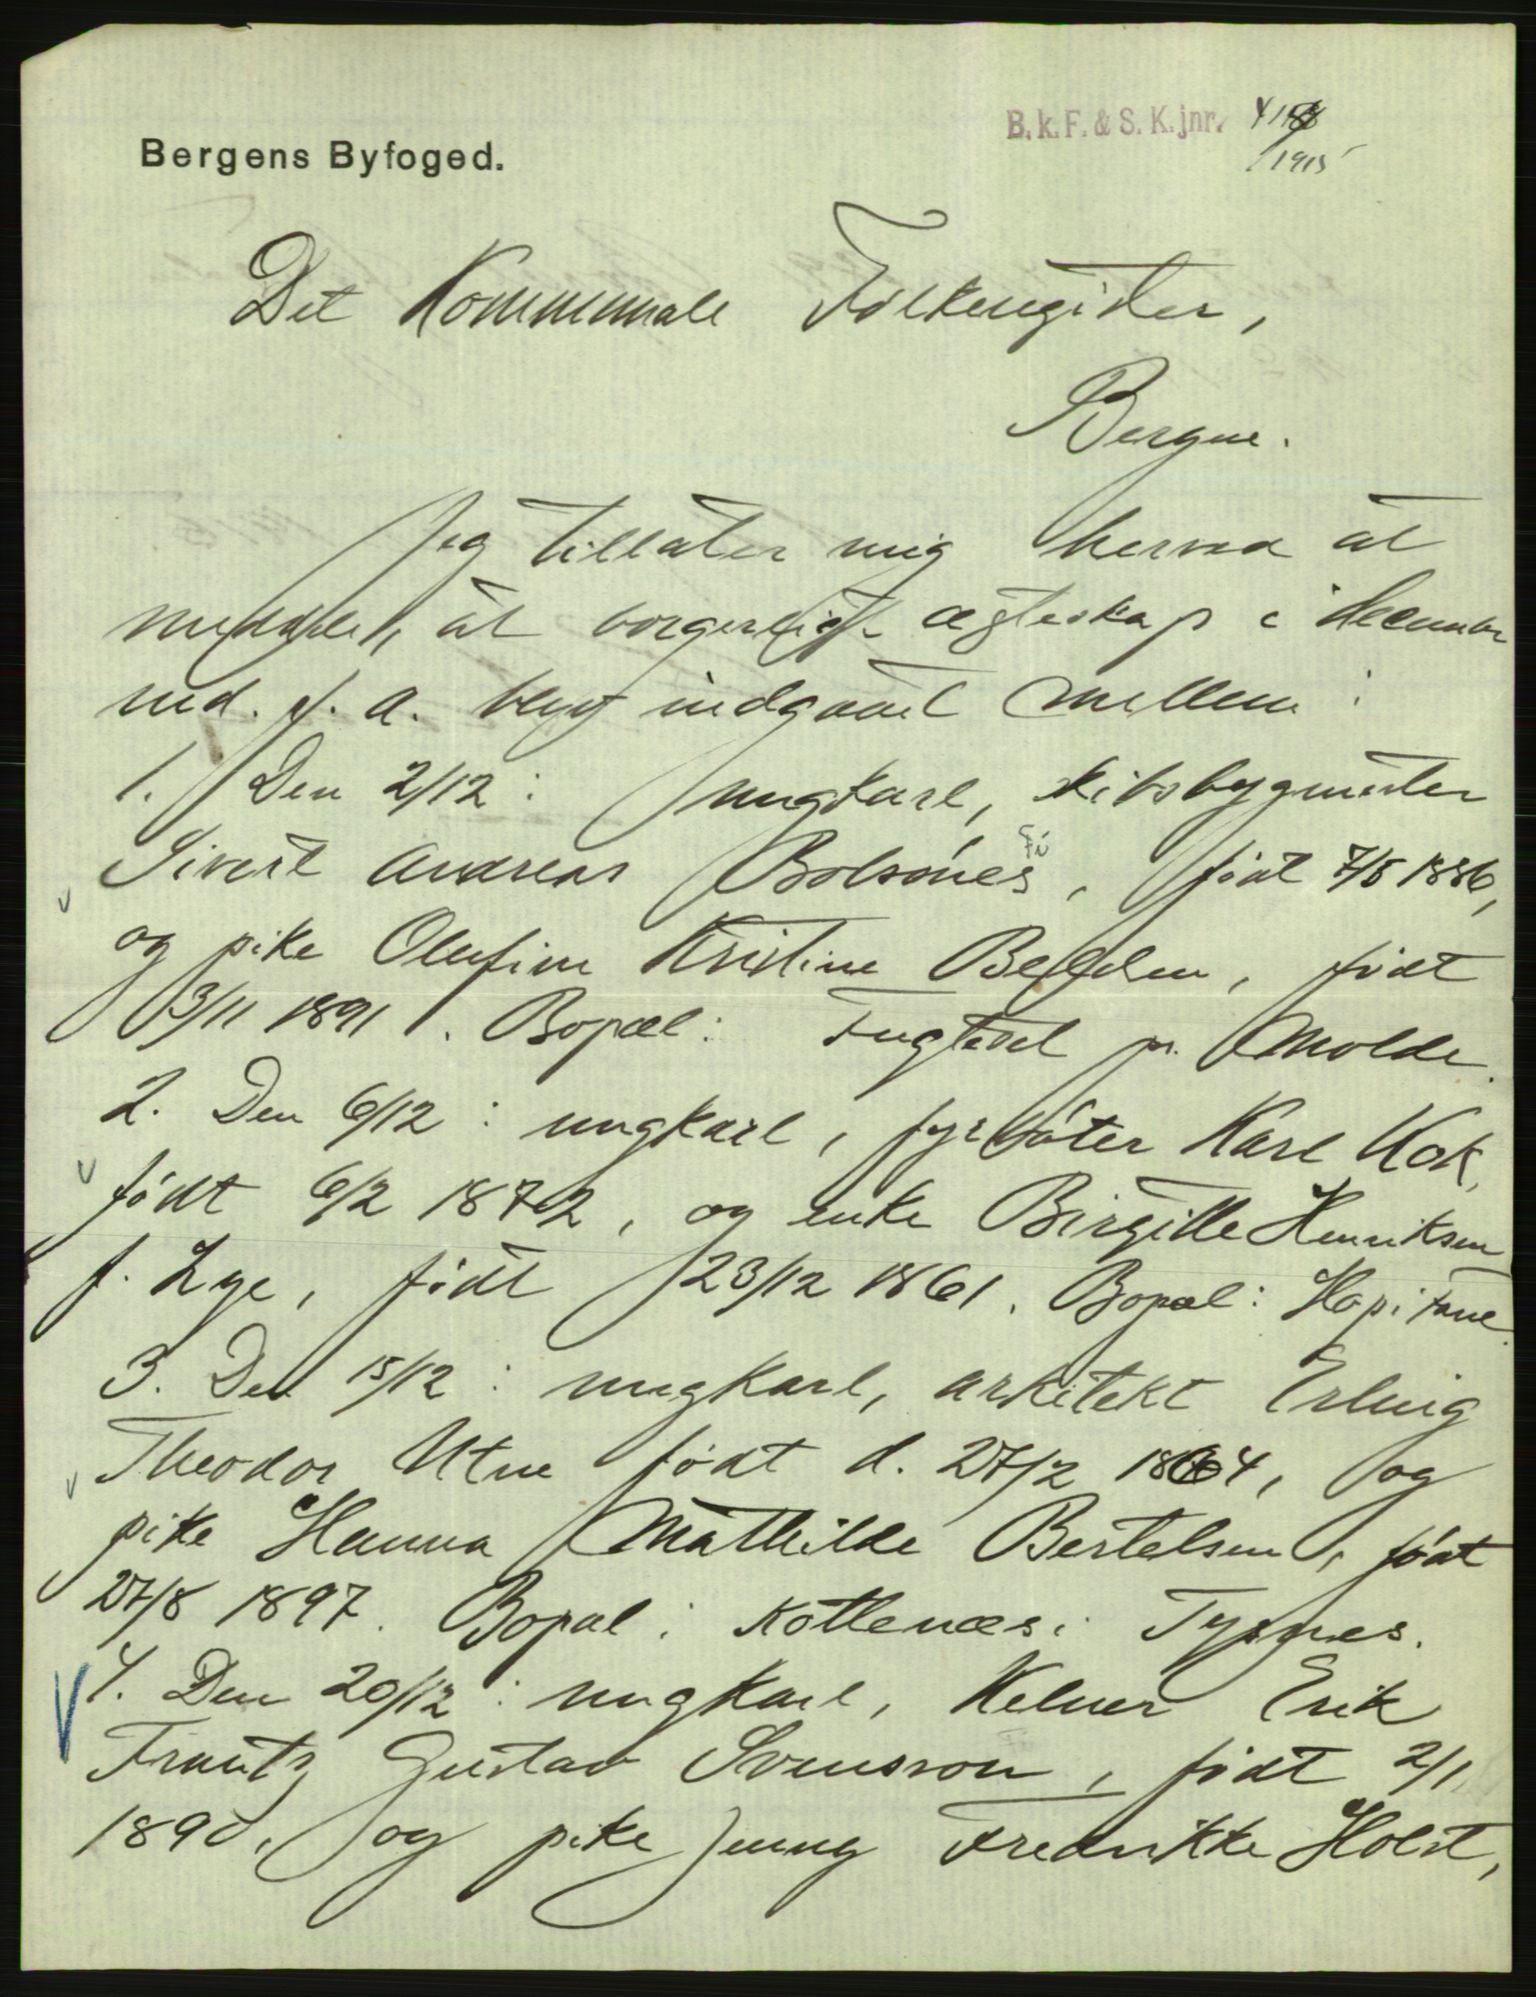 B. k. F. & S. K. jnr.
1915
Bergens Byfoged.
Det Kommunale Folkeregister,
Bergen.
Jeg tillater mig herved at
meddele, at borgerligt ægteskap i december
md. f. a. blev indgaaet mellem:
1. Den 2/12: ungkarl, skibsbygmester
Sivert Andreas Bolsønes, født 7/8 1886,
og pike Olufine Kristine Bolden, født
13/11 1891. Bopæl: Fugtset pr. Molde.
2. Den 6/12: ungkarl, fyrbøter Karl Kok,
født 6/2 1872, og enke Birgitte Henriksen
f. Lye, født 23/12 1861. Bopæl: Hop i Fane.
3. Den 15/12: ungkarl, arkitekt Erling
Theodor Utne født d. 27/2 1864, og
pike Hanna Mathilde Bertelsen, født
27/8 1897. Bopæl: Kottenæs i Tysnes.
4. Den 20/12: ungkarl, Kelner Erik
Frantz Gustav Svensson, født 2/1
1890, og pike Jenny Fredrikke Holst,